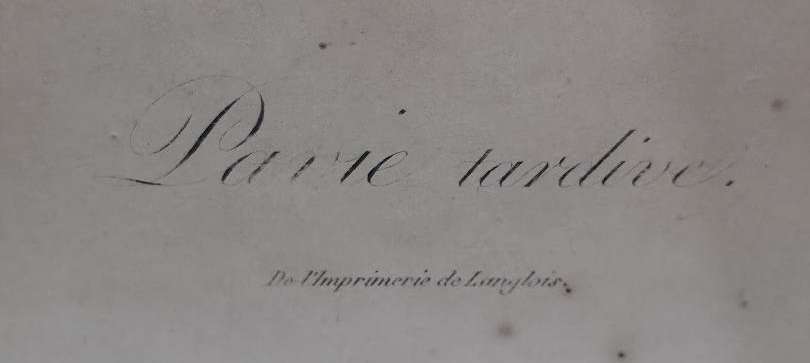 Pavie tardive.
De l'Imprimerie de Langlois.